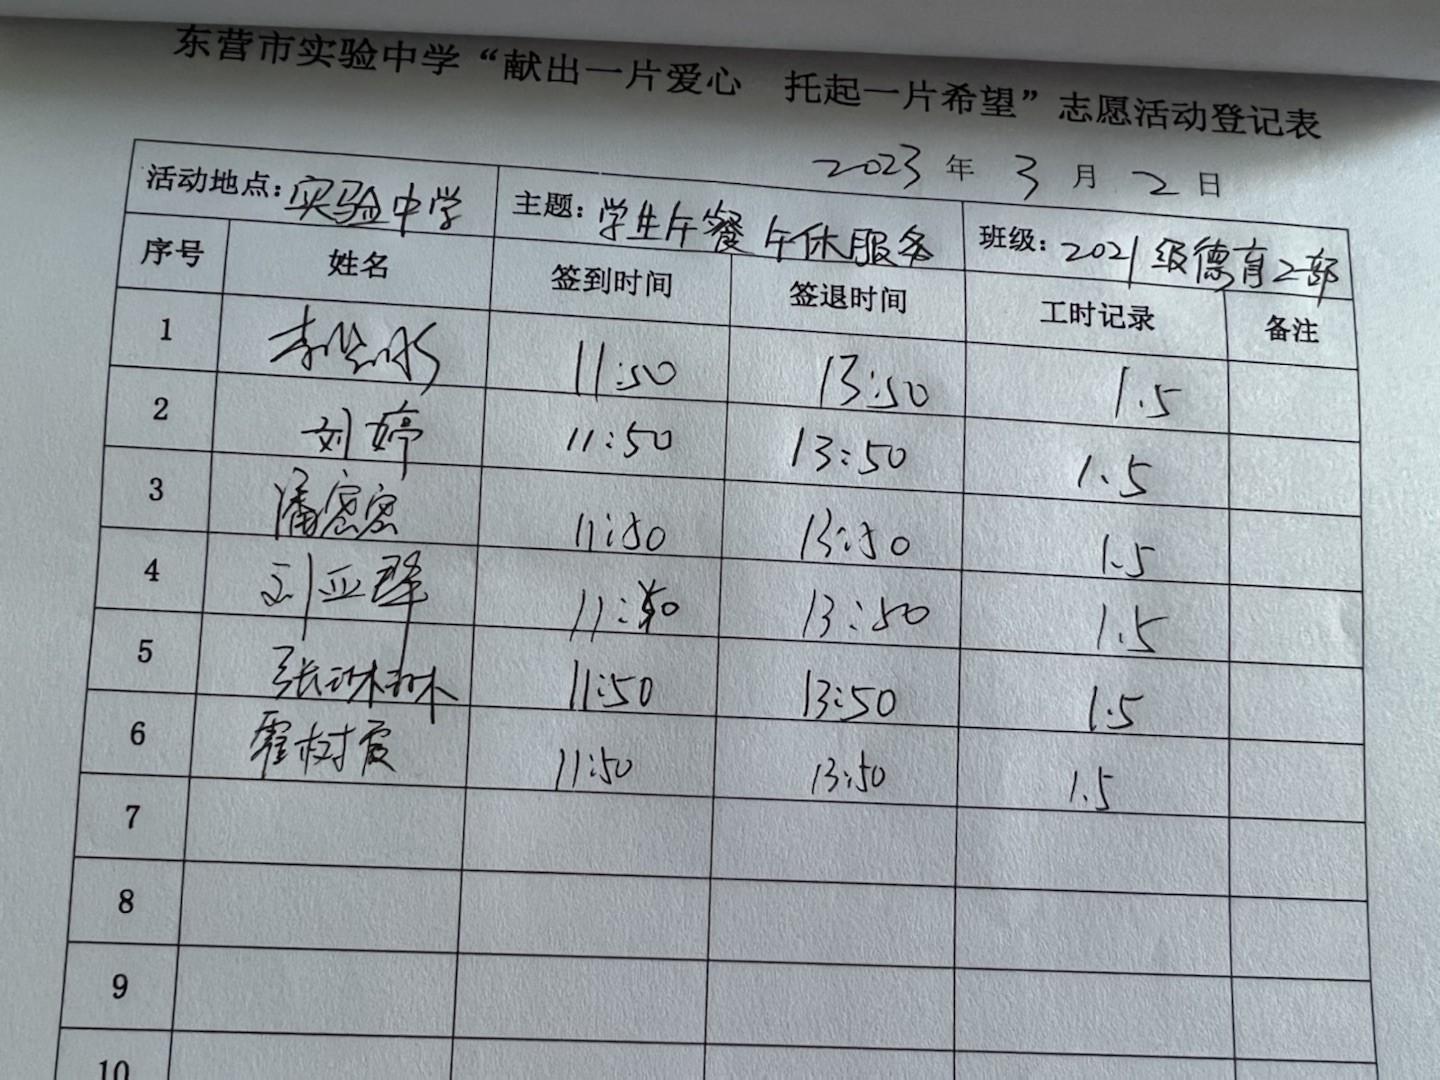 东营市实验中学“献出一片爱心 托起一片希望”志愿活动登记表
2023 年 3 月 2 日
活动地点：实验中学 主题：学生午餐午休服务 班级：2021级德育二部
序号 姓名 签到时间 签退时间 工时记录 备注
1 11:50 13:50 1.5
2 刘婷 11:50 13:50 1.5
3 潘密密 11:50 13:50 1.5
4 刘亚 11:50 13:50 1.5
5 张琳琳 11:50 13:50 1.5
6 霍树霞 11:50 13:50 1.5
7
8
9
10